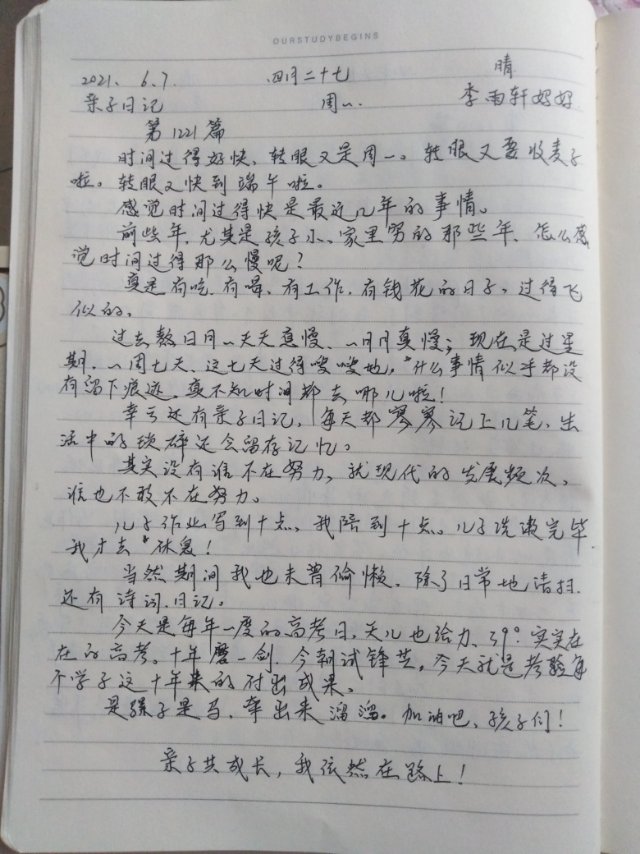 OURSTUDYBEGINS
2021. 6.7. 四月二十七 晴
亲子日记 周一. 李雨轩妈妈
第1221篇
时间过得好快、转眼又是周一。转眼又要收麦子
啦。转眼又快到端午啦。
感觉时间过得快是最近几年的事情。
前些年、尤其是孩子小、家里穷的那些年、怎么感
觉时间过得那么慢呢？
真是有吃、有喝、有工作、有钱花的日子。过得飞
似的。
过去数日月一天天真慢、一月月真慢；现在是过星
期、一周七天、这七天过得嗖嗖地，什么事情似乎都没
有留下痕迹。真不知时间都去哪儿啦！
幸亏还有亲子日记，每天都寥寥记上几笔、生
活中的琐碎还会留存记忆。
其实没有谁不在努力、就现代的发展频次、
谁也不敢不在努力。
儿子作业写到十点、我陪到十点。儿子洗漱完毕
我才去休息！
当然期间我也未曾偷懒、除了日常地清扫.
还有诗词.日记。
今天是每年一度的高考日，天儿也给力、39°实实在
在的高考。十年磨一剑、今朝试锋芒，今天就是考验每
个学子这十年来的付出成果。
是骡子是马、牵出来溜溜。加油吧、孩子们！
亲子共成长，我依然在路上！